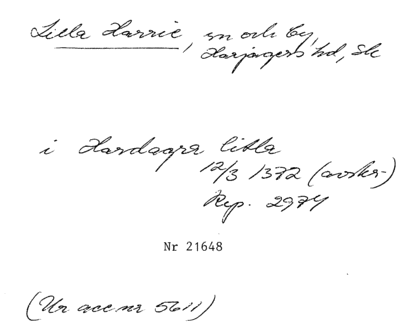 Lilla Harrie, sn och by,
Harjagers hd, Sk
i Hardagra litla
12/3 1372 (avskr.)
Rep. 2974
Nr 21648
(Ur acc nr 5611)